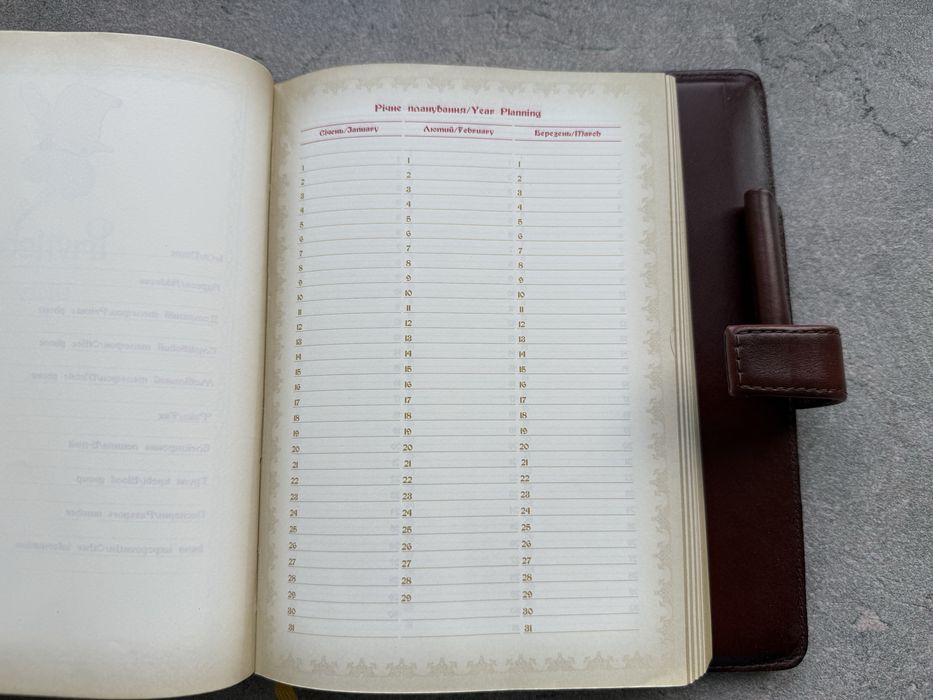 Річне планування/Year Planning
Січень/January Лютий/February Березень/March
1 1 1
2 2 2
3 3 3
4 4 4
5 5 5
6 6 6
7 7 7
8 8 8
9 9 9
10 10 10
11 11 11
12 12 12
13 13 13
14 14 14
15 15 15
16 16 16
17 17 17
18 18 18
19 19 19
20 20 20
21 21 21
22 22 22
23 23 23
24 24 24
25 25 25
26 26 26
27 27 27
28 28 28
29 29 29
30 30
31 31